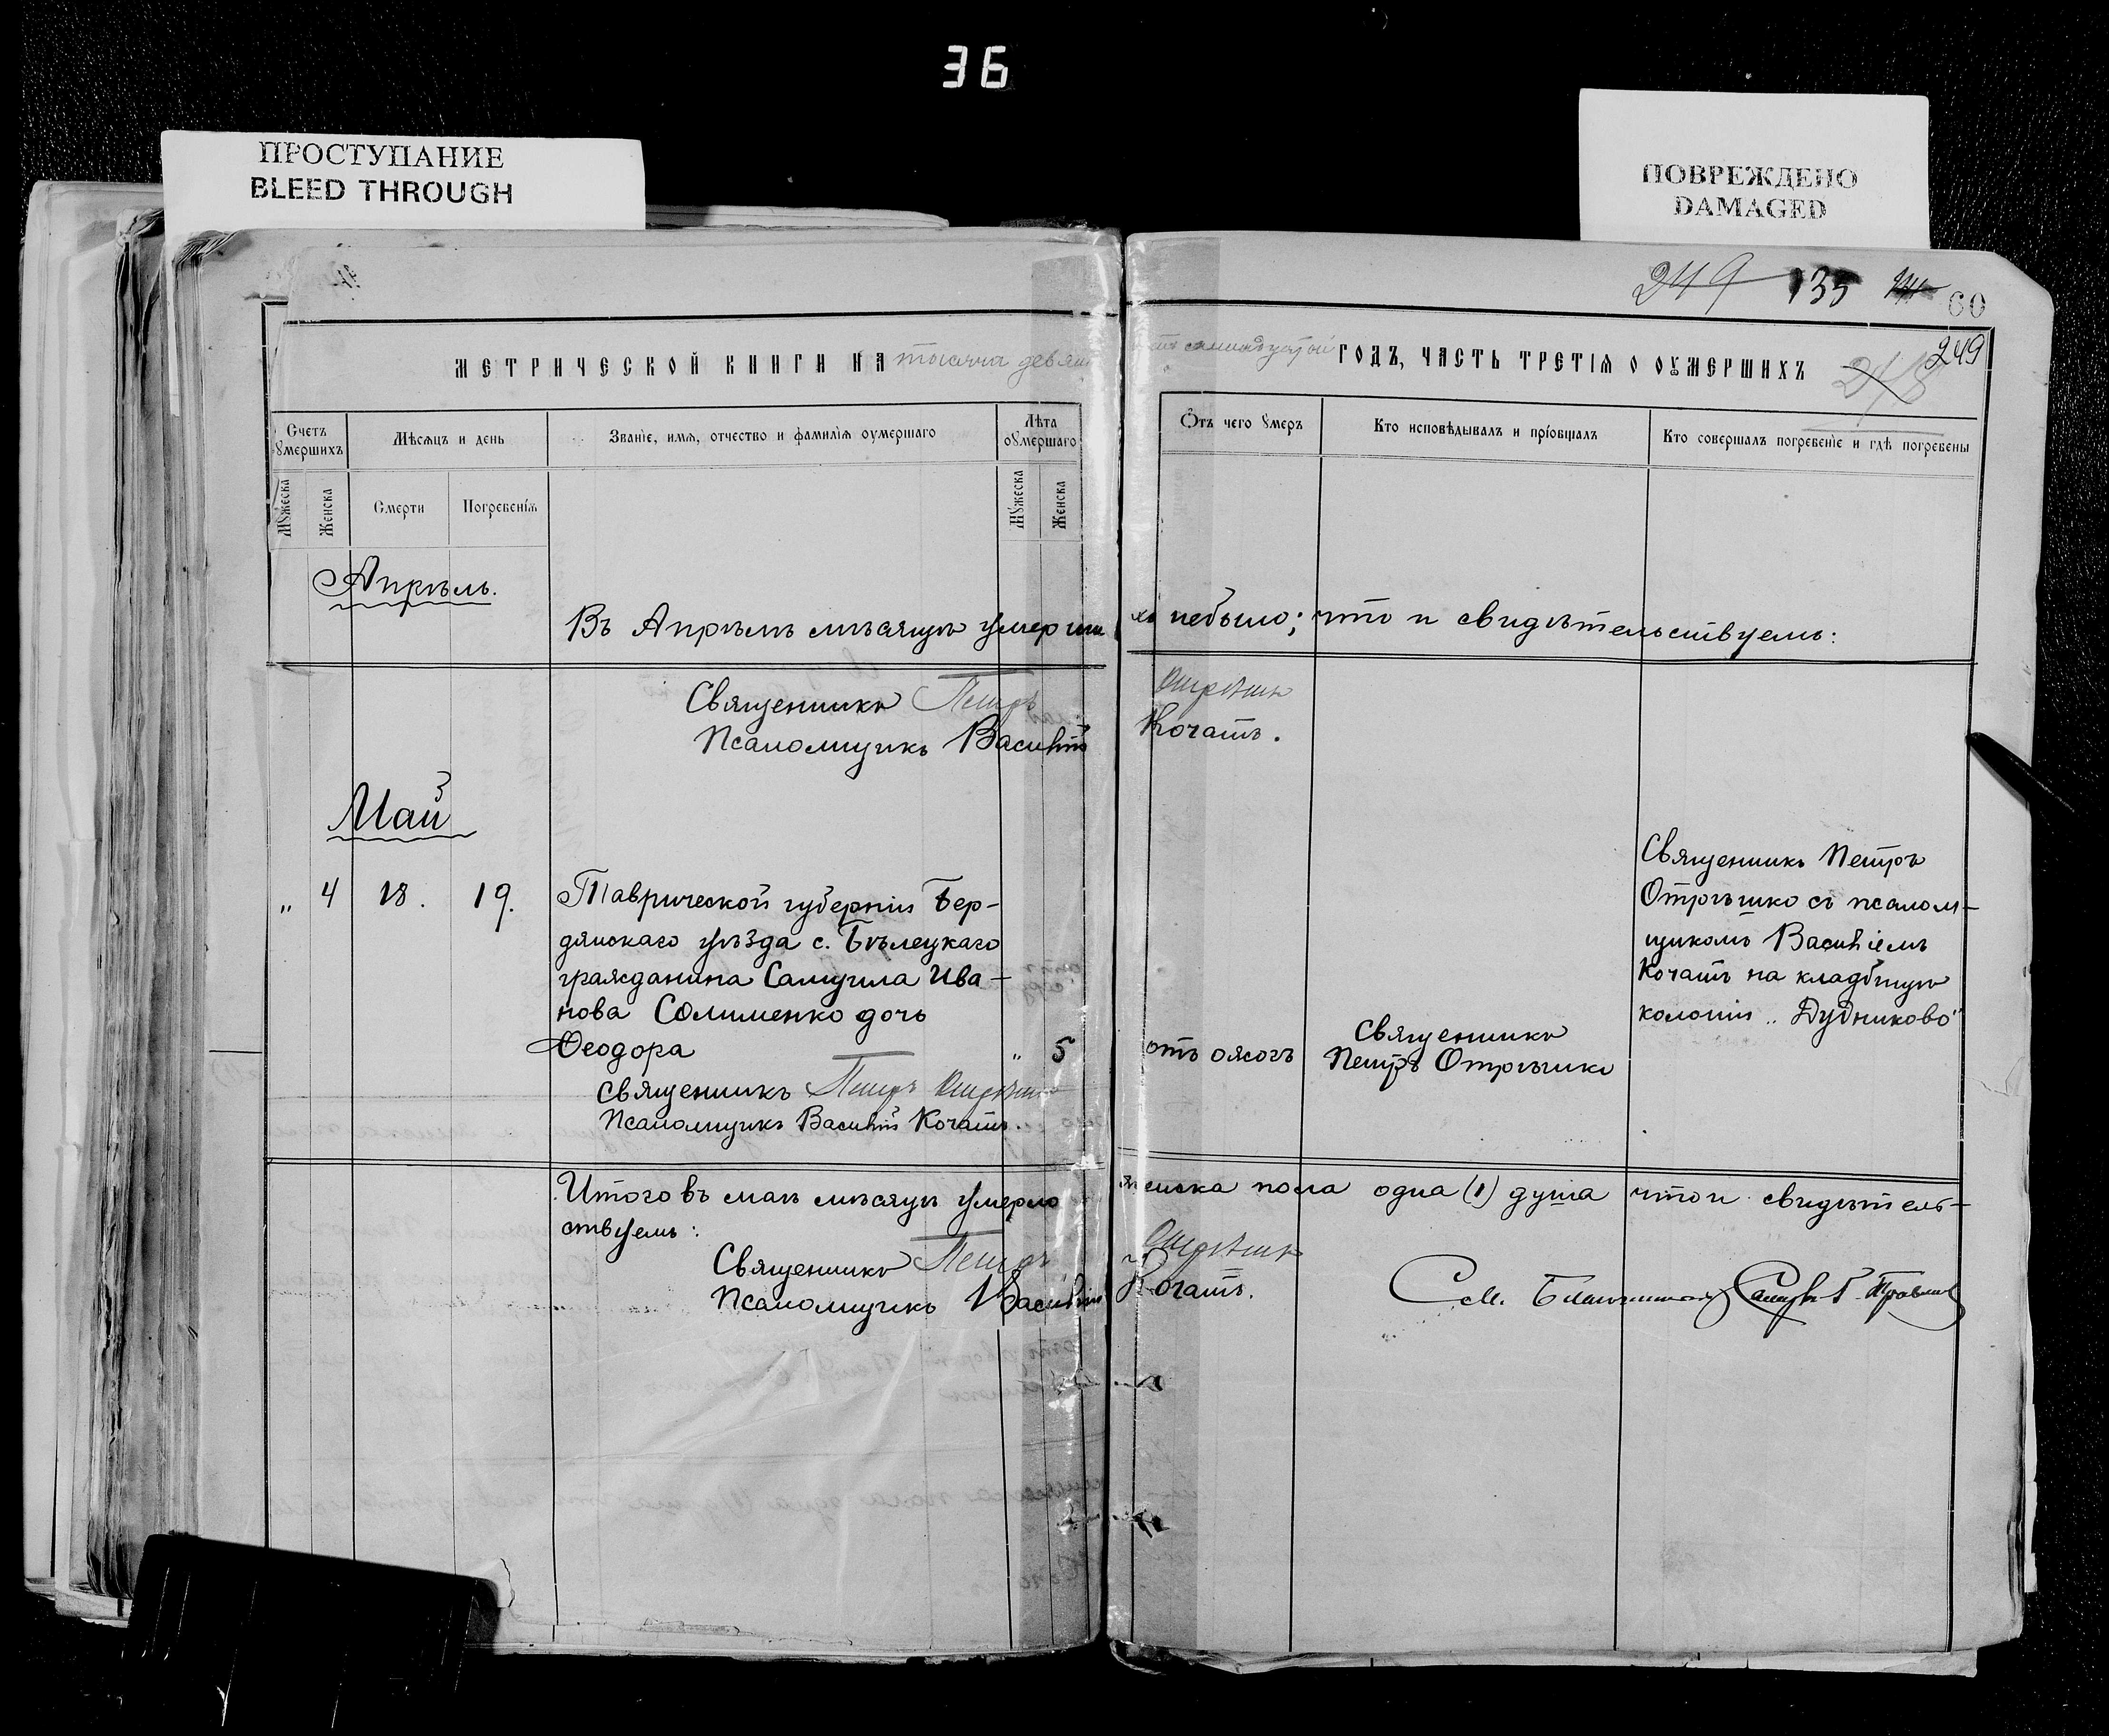 36
ПРОСТУПАНИЕ
BLEED THROUGH
ПОВРЕЖДЕНО
DAMAGED
249 135
60
249
МЕТРИЧЕСКОЙ КНИГИ НА тысяча девять
сотъ семнадцатый ГОДЪ, ЧАСТЬ ТРЕТІЯ О ОУМЕРШИХЪ
218
Счетъ ꙋмершихъ
Мѣсяцъ и день
Званіе, имя, отчество и фамилія оумершаго
Лѣта оумершаго
Ѿтъ чего ꙋмеръ
Кто исповѣдывалъ и пріобщалъ
Кто совершалъ погребеніе и гдѣ погребены
Мꙋжеска
Женска
Смерти
Погребенія
Мꙋжеска
Женска
Апрѣль.
Въ Апрѣлѣ мѣсяцѣ умерших
хъ небыло; что и свидѣтельствуемъ:
Священникъ Петръ Отрѣшко
Псаломщикъ Василій Кочатъ.
Май
„ 4 18. 19.
Таврической губерніи Бер-
дянскаго уѣзда с. Бѣлецкаго
гражданина Самуила Ива-
нова Солименко дочь
Ѳеодора „ 5
отъ ожогъ
Священникъ
Петръ Отрѣшко
Священникъ Петръ
Отрѣшко съ псалом-
щикомъ Василіемъ
Кочатъ на кладбищѣ
колоніи „Дудниково"
священникъ Петръ Отрѣшко
Псаломщикъ Василій Кочатъ.
Итого въ маѣ мѣсяцѣ умерло
женска пола одна (1) душа что и свидѣтель-
ствуемъ:
Священникъ Петръ Отрѣшко
Псаломщикъ Василій Кочатъ.